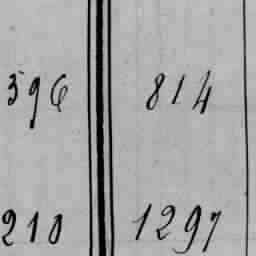 396 814
210 1297